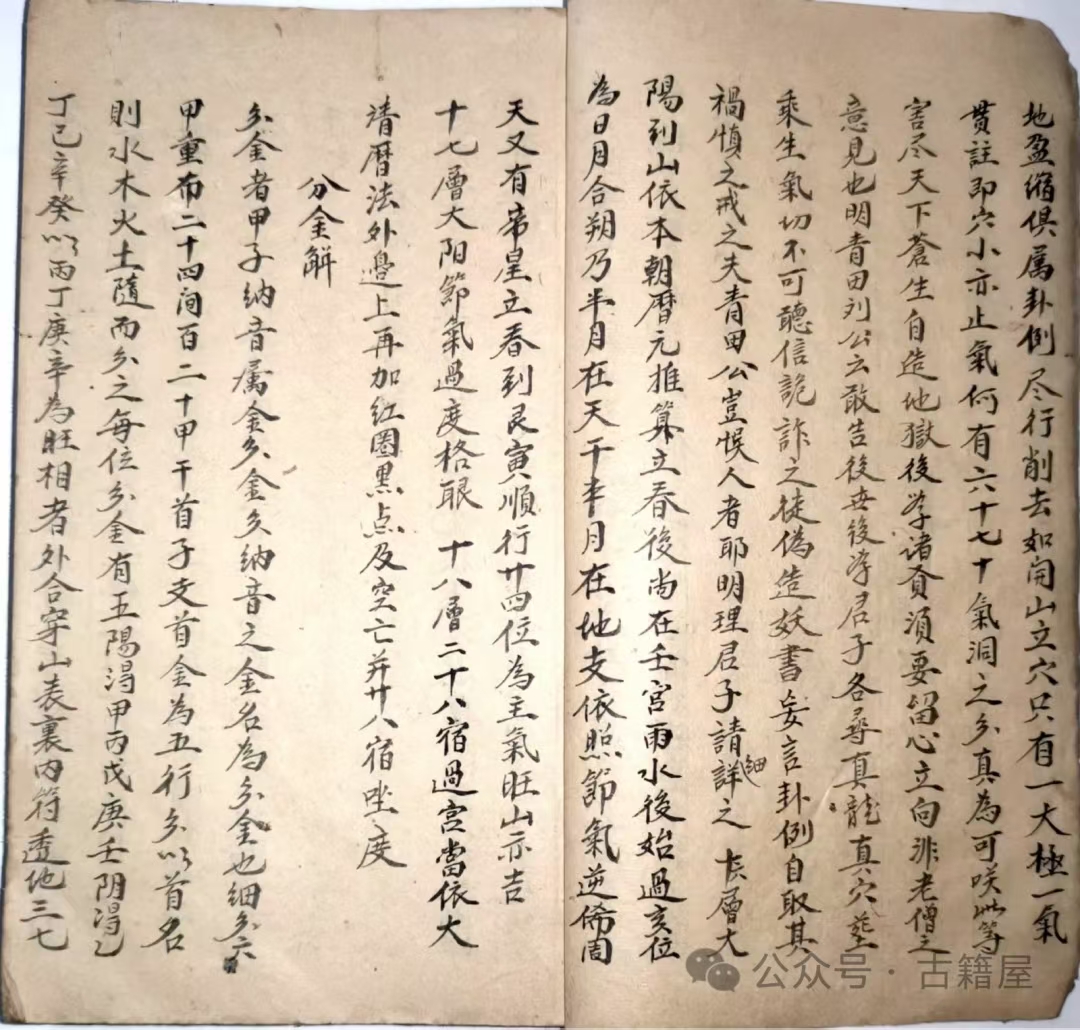 地盈縮俱属卦例尽行削去如開山立穴只有一大極一氣
貫註即穴小亦止氣何有六十七十氣洞之分真為可咲此等
害尽天下蒼生自造地獄後学诸賢須要留心立向非老僧之
意見也明青田刘公云敢告後世後学君子各尋真龍真穴塟
乘生氣切不可聽信詭詐之徒偽造妖書妄言卦例自取其
禍慎之戒之夫青田公豈悮人者耶明理君子請詳細之 層大
陽到山依本朝曆元推算立春後尚在壬宮雨水後始過亥位
為日月合朔乃半月在天干半月在地支依照節氣逆佈周
天又有帝星立春到艮寅順行廿四位為主氣旺山亦吉
十七層大阳節氣過度格眼 十八層二十八宿過宮當依大
清曆法外邊上再加红圈黑点及空亡并廿八宿坐度
分金解
分金者甲子納音属金分金分納音之金名為分金也細分六
甲重布二十四间百二十甲干首子支首金為五行分以首名
則水木火土隨而分之每位分金有五陽淂甲丙戊庚壬阴淂乙
丁己辛癸以丙丁庚辛為旺相者外合穿山表裏内符透地三七
公众号·古籍屋